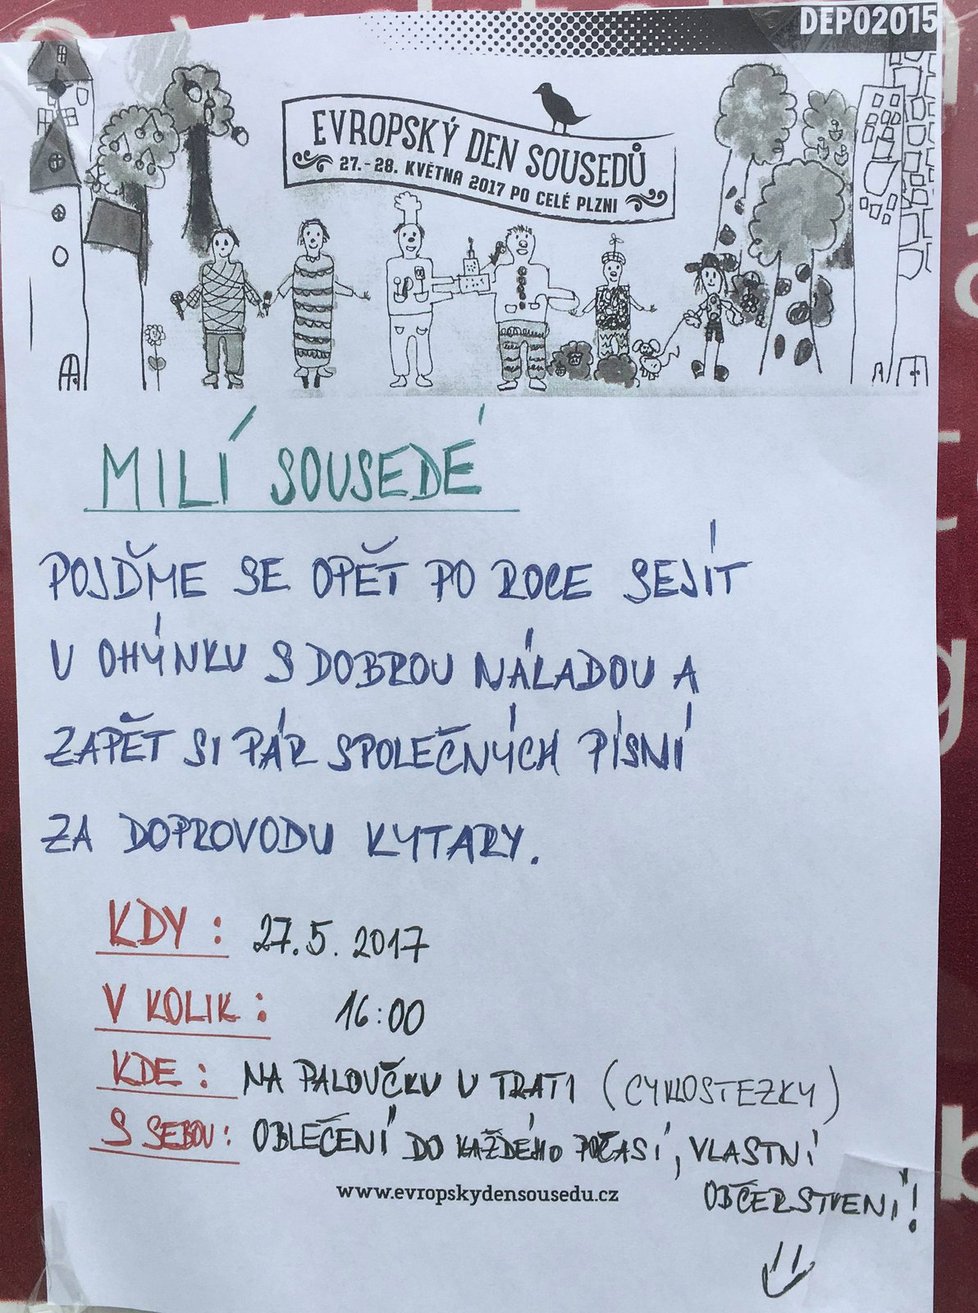 DEPO2015
EVROPSKÝ DEN SOUSEDŮ
27.-28. KVĚTNA 2017 PO CELÉ PLZNI
MILÍ SOUSEDÉ
POJĎME SE OPĚT PO ROCE SEJÍT
U OHÝNKU S DOBROU NÁLADOU A
ZAPĚT SI PÁR SPOLEČNÝCH PÍSNÍ
ZA DOPROVODU KYTARY.
KDY: 27.5. 2017
V KOLIK: 16:00
KDE: NA PALOUČKU U TRATI (CYKLOSTEZKY)
S SEBOU: OBLEČENÍ DO KAŽDÉHO POČASÍ, VLASTNÍ
OBČERSTVENÍ!
www.evropskydensousedu.cz